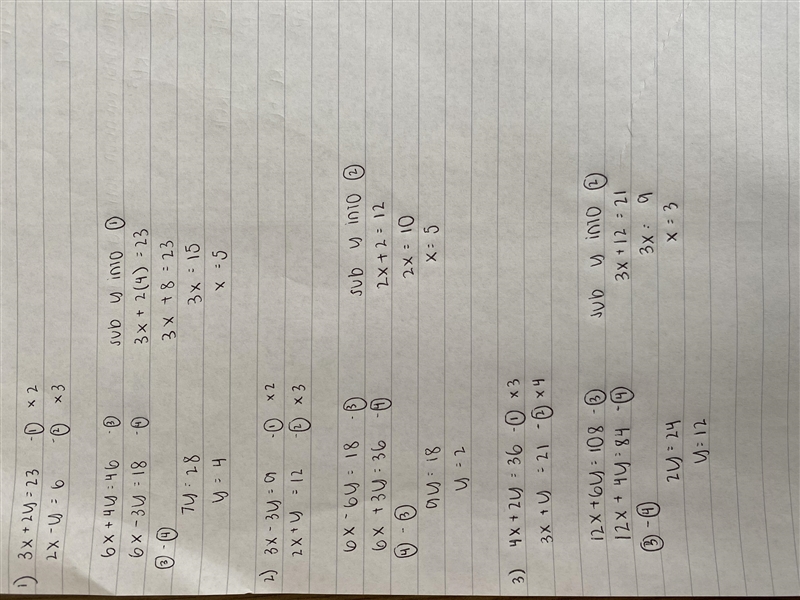 1) 3x + 2y = 23 - ① × 2
2x - y = 6 - ② × 3
6x + 4y = 46 - ③
6x - 3y = 18 - ④
③ - ④
7y = 28
y = 4
sub y into ①
3x + 2(4) = 23
3x + 8 = 23
3x = 15
x = 5
2) 3x - 3y = 9 - ① × 2
2x + y = 12 - ② × 3
6x - 6y = 18 - ③
6x + 3y = 36 - ④
④ - ③
9y = 18
y = 2
sub y into ②
2x + 2 = 12
2x = 10
x = 5
3) 4x + 2y = 36 - ① × 3
3x + y = 21 - ② × 4
12x + 6y = 108 - ③
12x + 4y = 84 - ④
③ - ④
2y = 24
y = 12
sub y into ②
3x + 12 = 21
3x = 9
x = 3